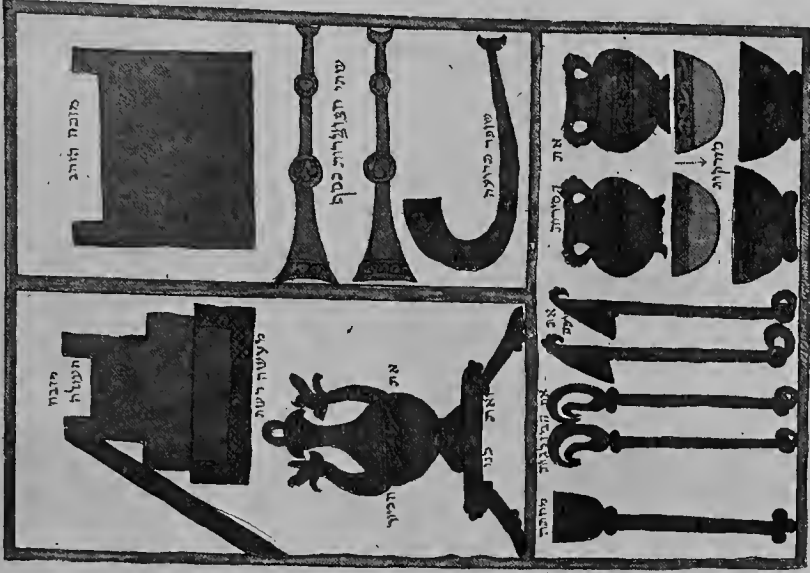 מזבח הזהב
שתי חצוצרות כסף
שופר תרועה
את
הסירות
מזרקות
מזבח
העולה
מעשה רשת
את
הכיור
ואת
כנו
את
יעים
את המזלגות
מחתה